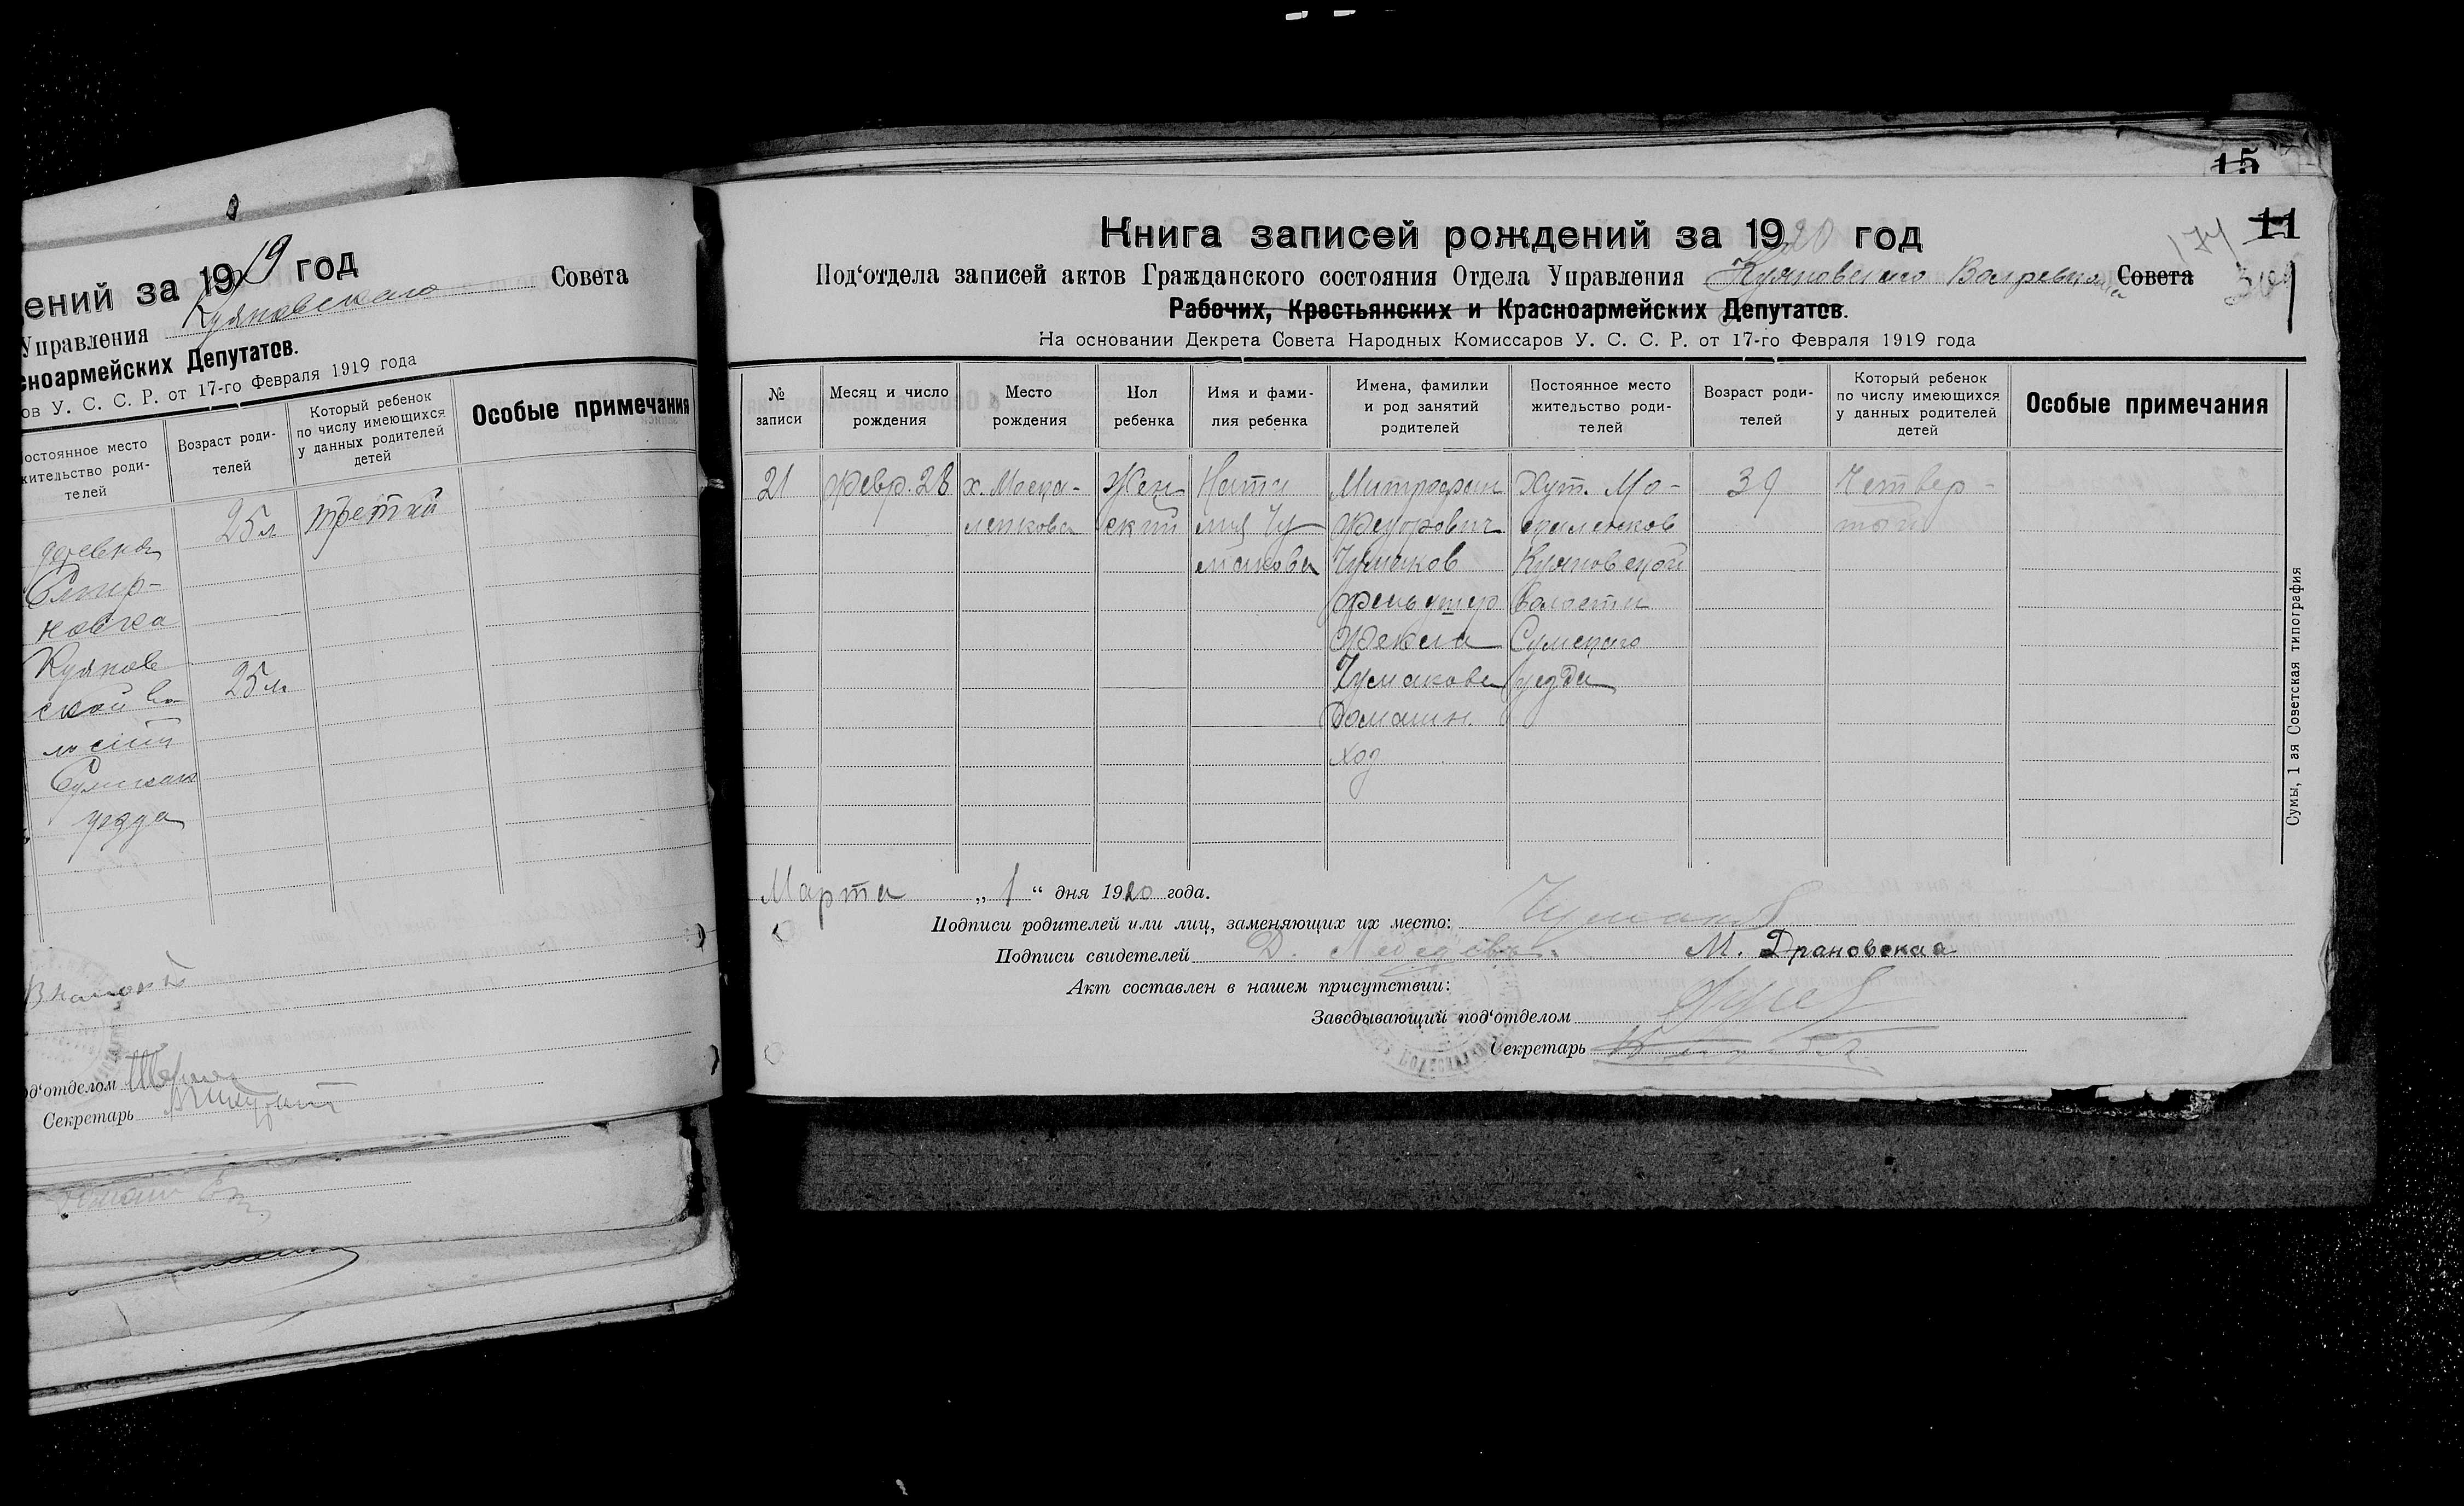 ений за 1919 год
Управления Куяновскаго Совета
сноармейских Депутатов.
ов У. С. С. Р. от 17-го Февраля 1919 года
остоянное место жительство роди-телей
Возраст роди-телей
Который ребенок по числу имеющихся у данных родителей детей
Особые примечания
25 л. третий
деревня
новка
Куянов
ской во
лости
25 л.
уезда
од‘отделом
Секретарь
15
Книга записей рождений за 1920 год
11
174
Под‘отдела записей актов Гражданского состояния Отдела Управления Куяновского Волревкома Совета
Рабочих, Крестьянских и Красноармейских Депутатов.
На основании Декрета Совета Народных Комиссаров У. С. С. Р. от 17-го Февраля 1919 года
№ записи
Месяц и число рождения
Место рождения
Пол ребенка
Имя и фами-лия ребенка
Имена, фамилии и род занятий родителей
Постоянное место жительство роди-телей
Возраст роди-телей
Который ребенок по числу имеющихся у данных родителей детей
Особые примечания
21 Февр. 28 х. Моска- Жен- Ната Митрофан Хут. Мо- 39 Четвер-
ленкова ский лия Чу Федорович скаленков тый
макова Чумаков Куяновской
волости
Фекла Сумскаго
Чумакова уезда
Домашн.
ход
Сумы, 1 ая Советская типография
Марта „1“ дня 1920 года.
Подписи родителей или лиц, заменяющих их место: Чумаков
Подписи свидетелей Д. М. Драновская
Акт составлен в нашем присутствии:
Заведывающий под‘отделом
Секретарь